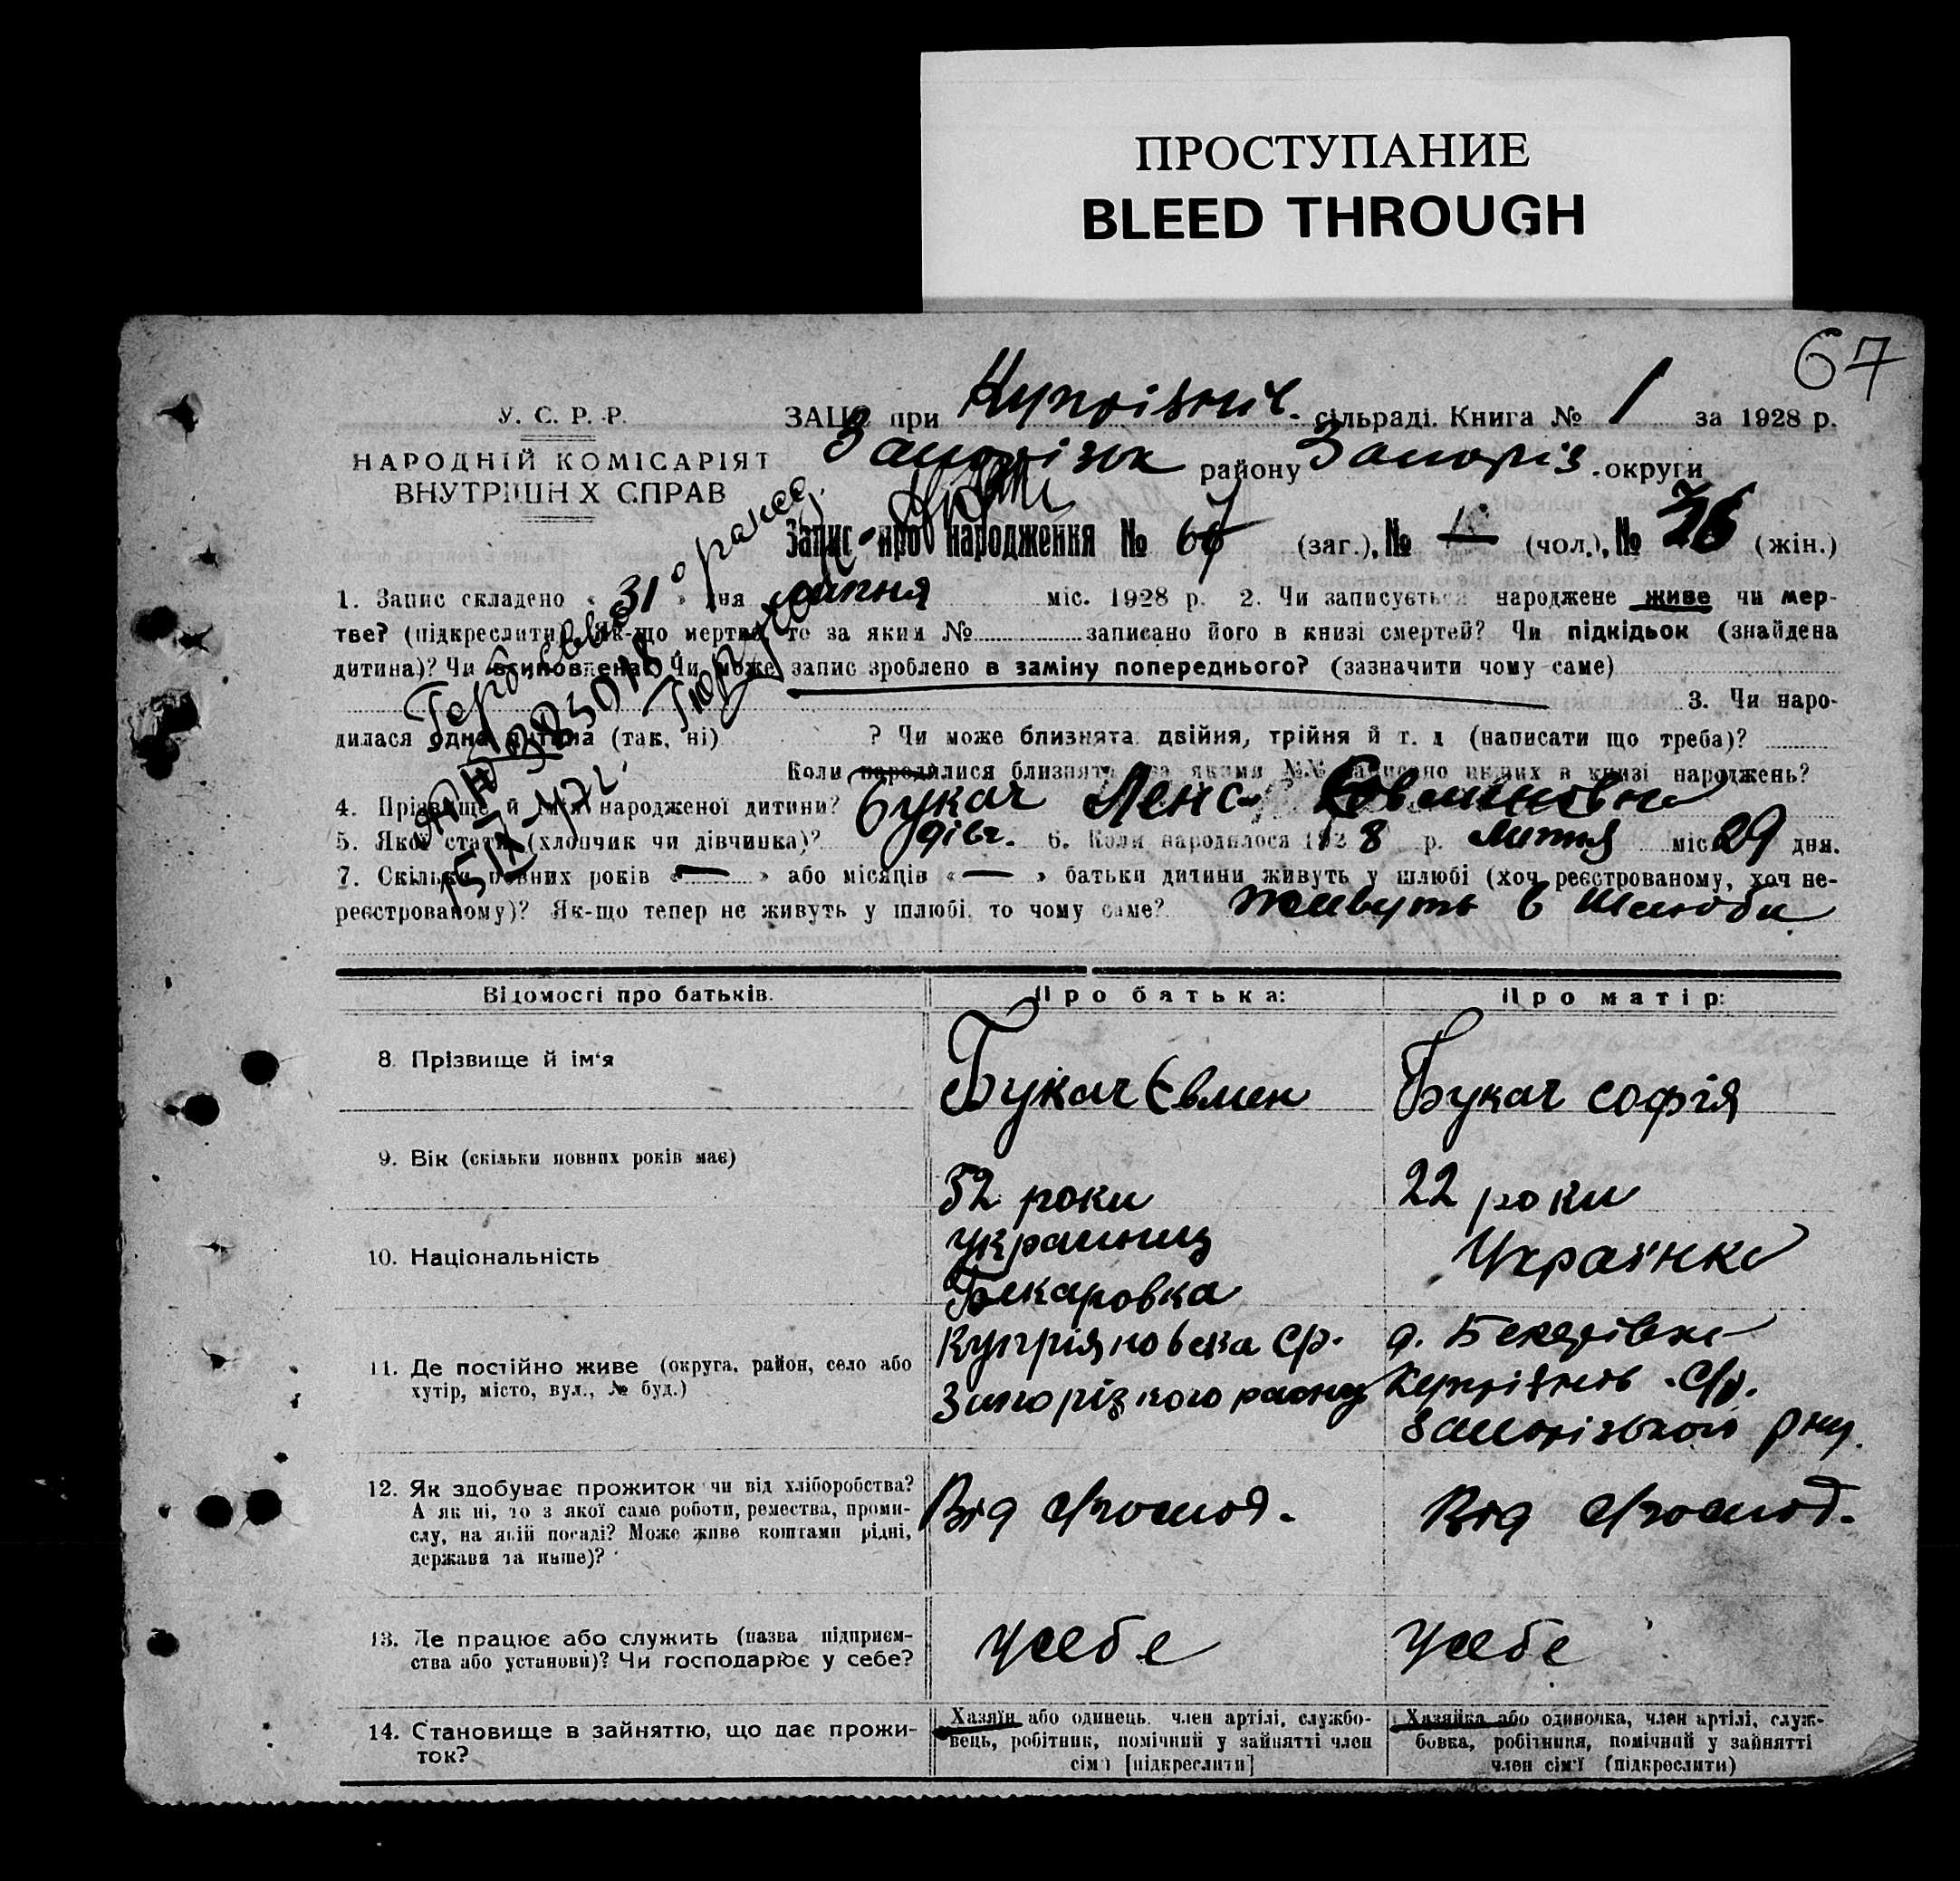 ПРОСТУПАНИЕ
BLEED THROUGH
67
У. С. Р. Р.
НАРОДНІЙ КОМІСАРІЯТ
ВНУТРІШНІХ СПРАВ
ЗАЦС при Купріянів. сільраді. Книга № 1 за 1928 р.
Запорізьк району Запоріз. округи
Запис про народження № 67 (заг.), № — (чол.), № 36 (жін.)
1. Запис складено « 31 » дня липня міс. 1928 р. 2. Чи записується народжене живе чи мер-
тве? (підкреслити). Як-що мертве, то за яким № записано його в книзі смертей? Чи підкідьок (знайдена
дитина)? Чи всиновлена? Чи може запис зроблено в заміну попереднього? (зазначити чому саме)
3. Чи наро-
дилася одна дитина (так, ні) ? Чи може близнята двійня, трійня й т. д (написати що треба)?
Коли народилися близнята за якими №№ записано инших в книзі народжень?
4. Прізвище й ім'я народженої дитини? Букач Лена Євминовна
5. Якої статі (хлопчик чи дівчинка)? дівч. 6. Коли народилося 1928 р. липня міс 29 дня.
7. Скільки повних років «—» або місяців «—» батьки дитини живуть у шлюбі (хоч реєстрованому, хоч не-
реєстрованому)? Як-що тепер не живуть у шлюбі, то чому саме? живуть в шлюби
Відомості про батьків.
Про батька:
Про матір:
8. Прізвище й ім'я
Букач Євмен
Букач Софія
9. Вік (скільки повних років має)
32 роки
22 роки
10. Національність
Украиниц
Українка
11. Де постійно живе (округа, район, село або
хутір, місто, вул., № буд.)
Бекаровка
Купріяновска Ср.
Запорізкого раону
д. Бекарівка
Купріянів. С/р.
Запорізького рну.
12. Як здобуває прожиток чи від хліборобства?
А як ні, то з якої саме роботи, ремества, проми-
слу, на якій посаді? Може живе коштами рідні,
держави та инше)?
Від с/господ.
Від с/господ.
13. Де працює або служить (назва підприєм-
ства або установи)? Чи господарює у себе?
У себе
У себе
14. Становище в зайняттю, що дає прожи-
ток?
Хазяїн або одинець, член артілі, службо-
вець, робітник, помічний у зайнятті член
сім'ї [підкреслити]
Хазяйка або одиночка, член артілі, служ-
бовка, робітниця, помічний у зайнятті
член сім'ї (підкреслити)